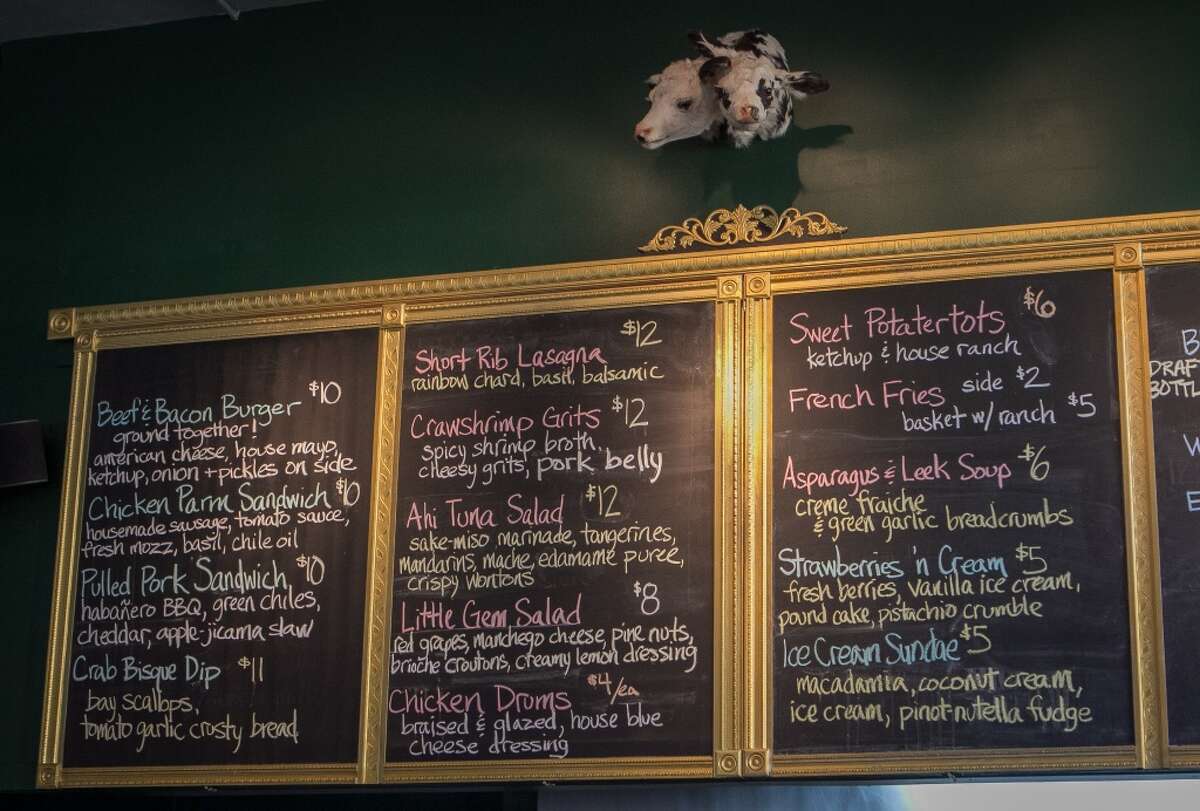 Beef & Bacon Burger $10
ground together!
american cheese, house mayo,
ketchup, onion + pickles on side
Chicken Parm Sandwich $10
housemade sausage, tomato sauce,
fresh mozz, basil, chile oil
Pulled Pork Sandwich $10
habañero BBQ, green chiles,
cheddar, apple-jicama slaw
Crab Bisque Dip $11
bay scallops,
tomato garlic crusty bread
Short Rib Lasagna $12
rainbow chard, basil, balsamic
Crawshrimp Grits $12
spicy shrimp broth,
cheesy grits, pork belly
Ahi Tuna Salad $12
sake-miso marinade, tangerines,
mandarins, mache, edamame puree,
crispy wontons
Little Gem Salad $8
red grapes, manchego cheese, pine nuts,
brioche croutons, creamy lemon dressing
Chicken Drums $4/ea
braised & glazed, house blue
cheese dressing
Sweet Potatertots $6
ketchup & house ranch
French Fries side $2
basket w/ ranch $5
Asparagus & Leek Soup $6
creme fraiche
& green garlic breadcrumbs
Strawberries 'n Cream $5
fresh berries, vanilla ice cream,
pound cake, pistachio crumble
Ice Cream Sundae $5
macadamia, coconut cream,
ice cream, pinot-nutella fudge
B
DRAF
BOTTL
W
E